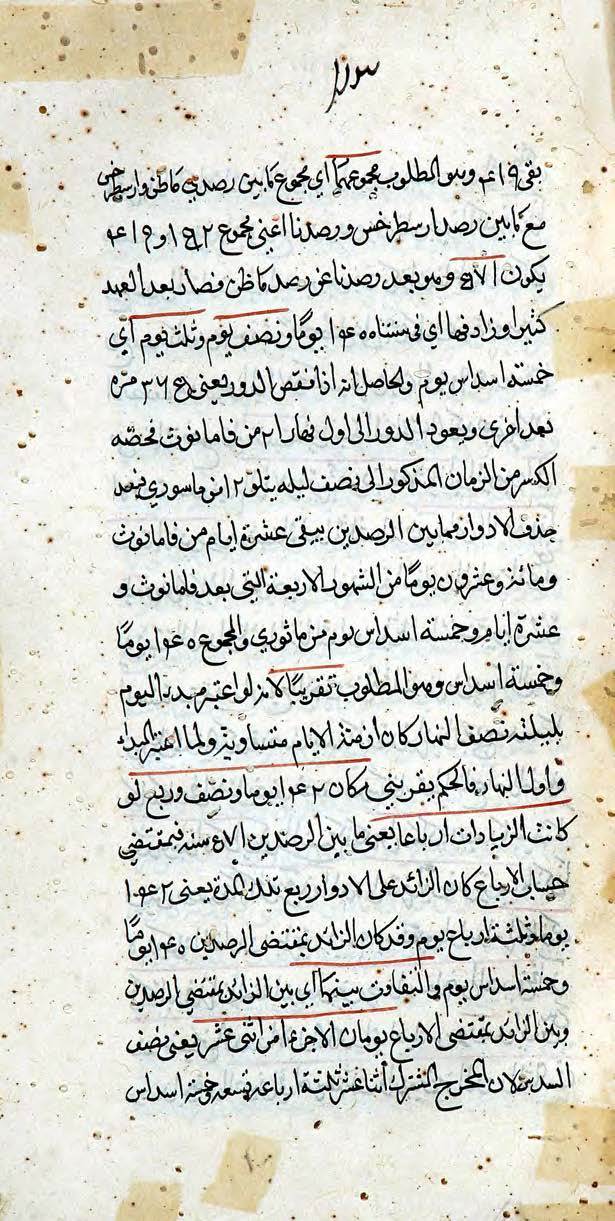 بقى ٤١٩ وهو المطلوب مجموعهما اي مجموع ما بين رصدي ماطن وارسطرخس
مع ما بين رصد ارسطرخس ورصدنا اعنى مجموع ١٥٢ و ٤١٩
يكون ٥٧١ وهو بعد رصدنا عن رصد ماطن فصار بعد العهد
كثيرا وزاد فيها اي في سنتنا ١٤٠ يوما ونصف يوم وثلث يوم اي
خمسة اسداس يوم والحاصل انه اذا نقص الدور يعنى ٣٦٥ مرة
بعد اخرى ويعود الدور الى اول نهار ٢١ من فامانوث فحصّه
الكسر من الزمان المذكور الى نصف ليله يتلو ١٢ من ماسوري فبعد
حذف الادوار مما بين الرصدين يبقى عشرة ايام من فامانوث
ومائة وعشرون يوما من الشهور الاربعة التي بعد فامانوث و
عشرة ايام وخمسة اسداس يوم من ماثوري والمجموع ١٤٠ يوما
وخمسة اسداس وهو المطلوب تقريبا لانه لو اعتبر مبدء اليوم
بليلته نصف النهار كان ان هذه الايام متساوية ولما اعتبر المبدء
واول النهار فالحكم تقريبي مكان ١٤٢ يوما ونصف وربع لو
كانت الزيادات ارباعا يعنى ما بين الرصدين ٥٧١ سنه فبمقتضي
حساب الارباع كان الزائد على الادوار ربع تلك المدة يعنى ١٤٢
يوما وثلثة ارباع يوم وقد كان الزائد بمقتضى الرصدين ١٤٠ يوما
وخمسة اسداس يوم والتفاوت بينهما اي بين الزائد بمقتضي الرصدين
وبين الزائد بمقتضى الارباع يومان الا جزءا من اثنى عشر يعنى نصف
السدس لان المخرج المشترك اثنا عشر ثلثة ارباعه تسعه وخمسة اسداس